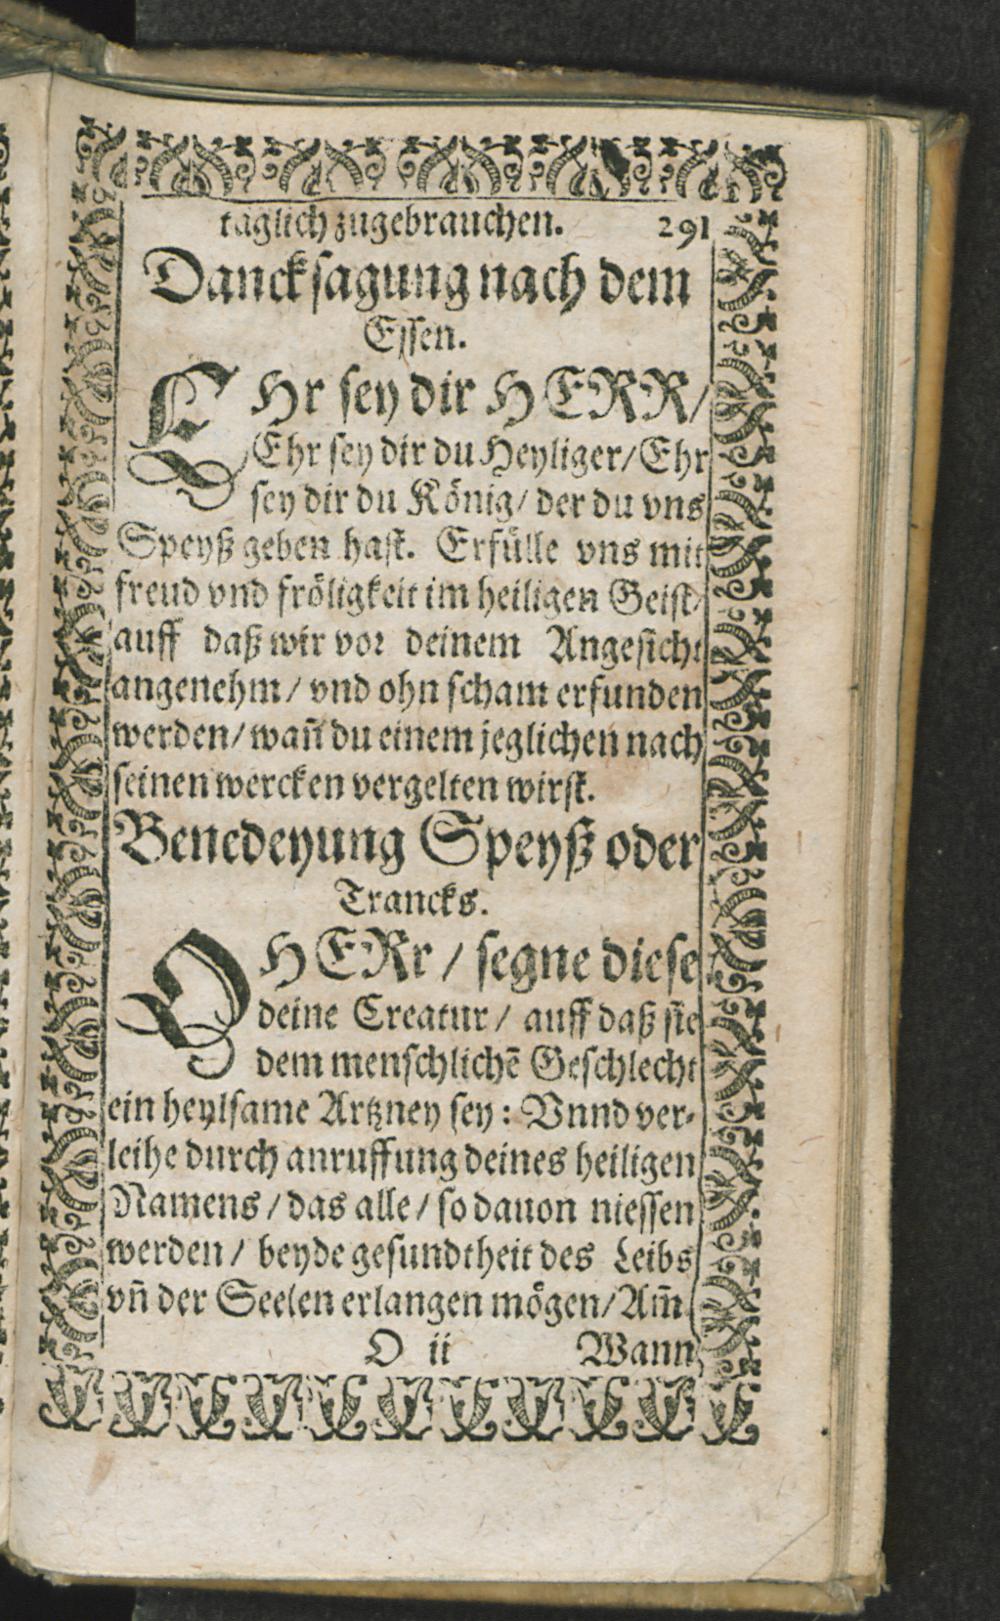 täglich zugebrauchen. 291
Dancksagung nach dem
Essen.
EHr sey dir HERR/
Ehr sey dir du Heyliger/ Ehr
sey dir du König/ der du vns
Speyß geben hast. Erfülle vns mit
freud vnd fröligkeit im heiligen Geist/
auff daß wir vor deinem Angesicht
angenehm/ vnd ohn scham erfunden
werden/ wañ du einem jeglichen nach
seinen wercken vergelten wirst.
Benedeyung Speyß oder
Trancks.
O HERr / segne diese
deine Creatur / auff daß sie
dem menschlichē Geschlecht
ein heylsame Artzney sey: Vnnd ver-
leihe durch anruffung deines heiligen
Namens / das alle / so dauon niessen
werden / beyde gesundtheit des Leibs
vñ der Seelen erlangen mögen/ Am̃.
O ii Wann